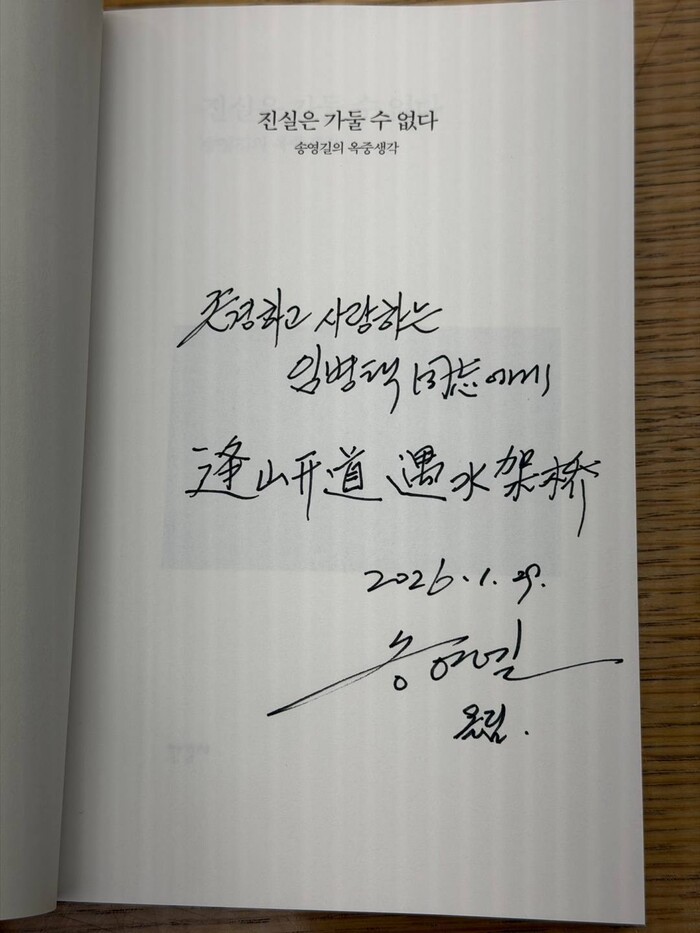 진실은 가둘 수 없다
송영길의 옥중생각
존경하고 사랑하는
임병택 同志에게
逢山开道 遇水架桥
2026. 1. 29.
송영길
올림.